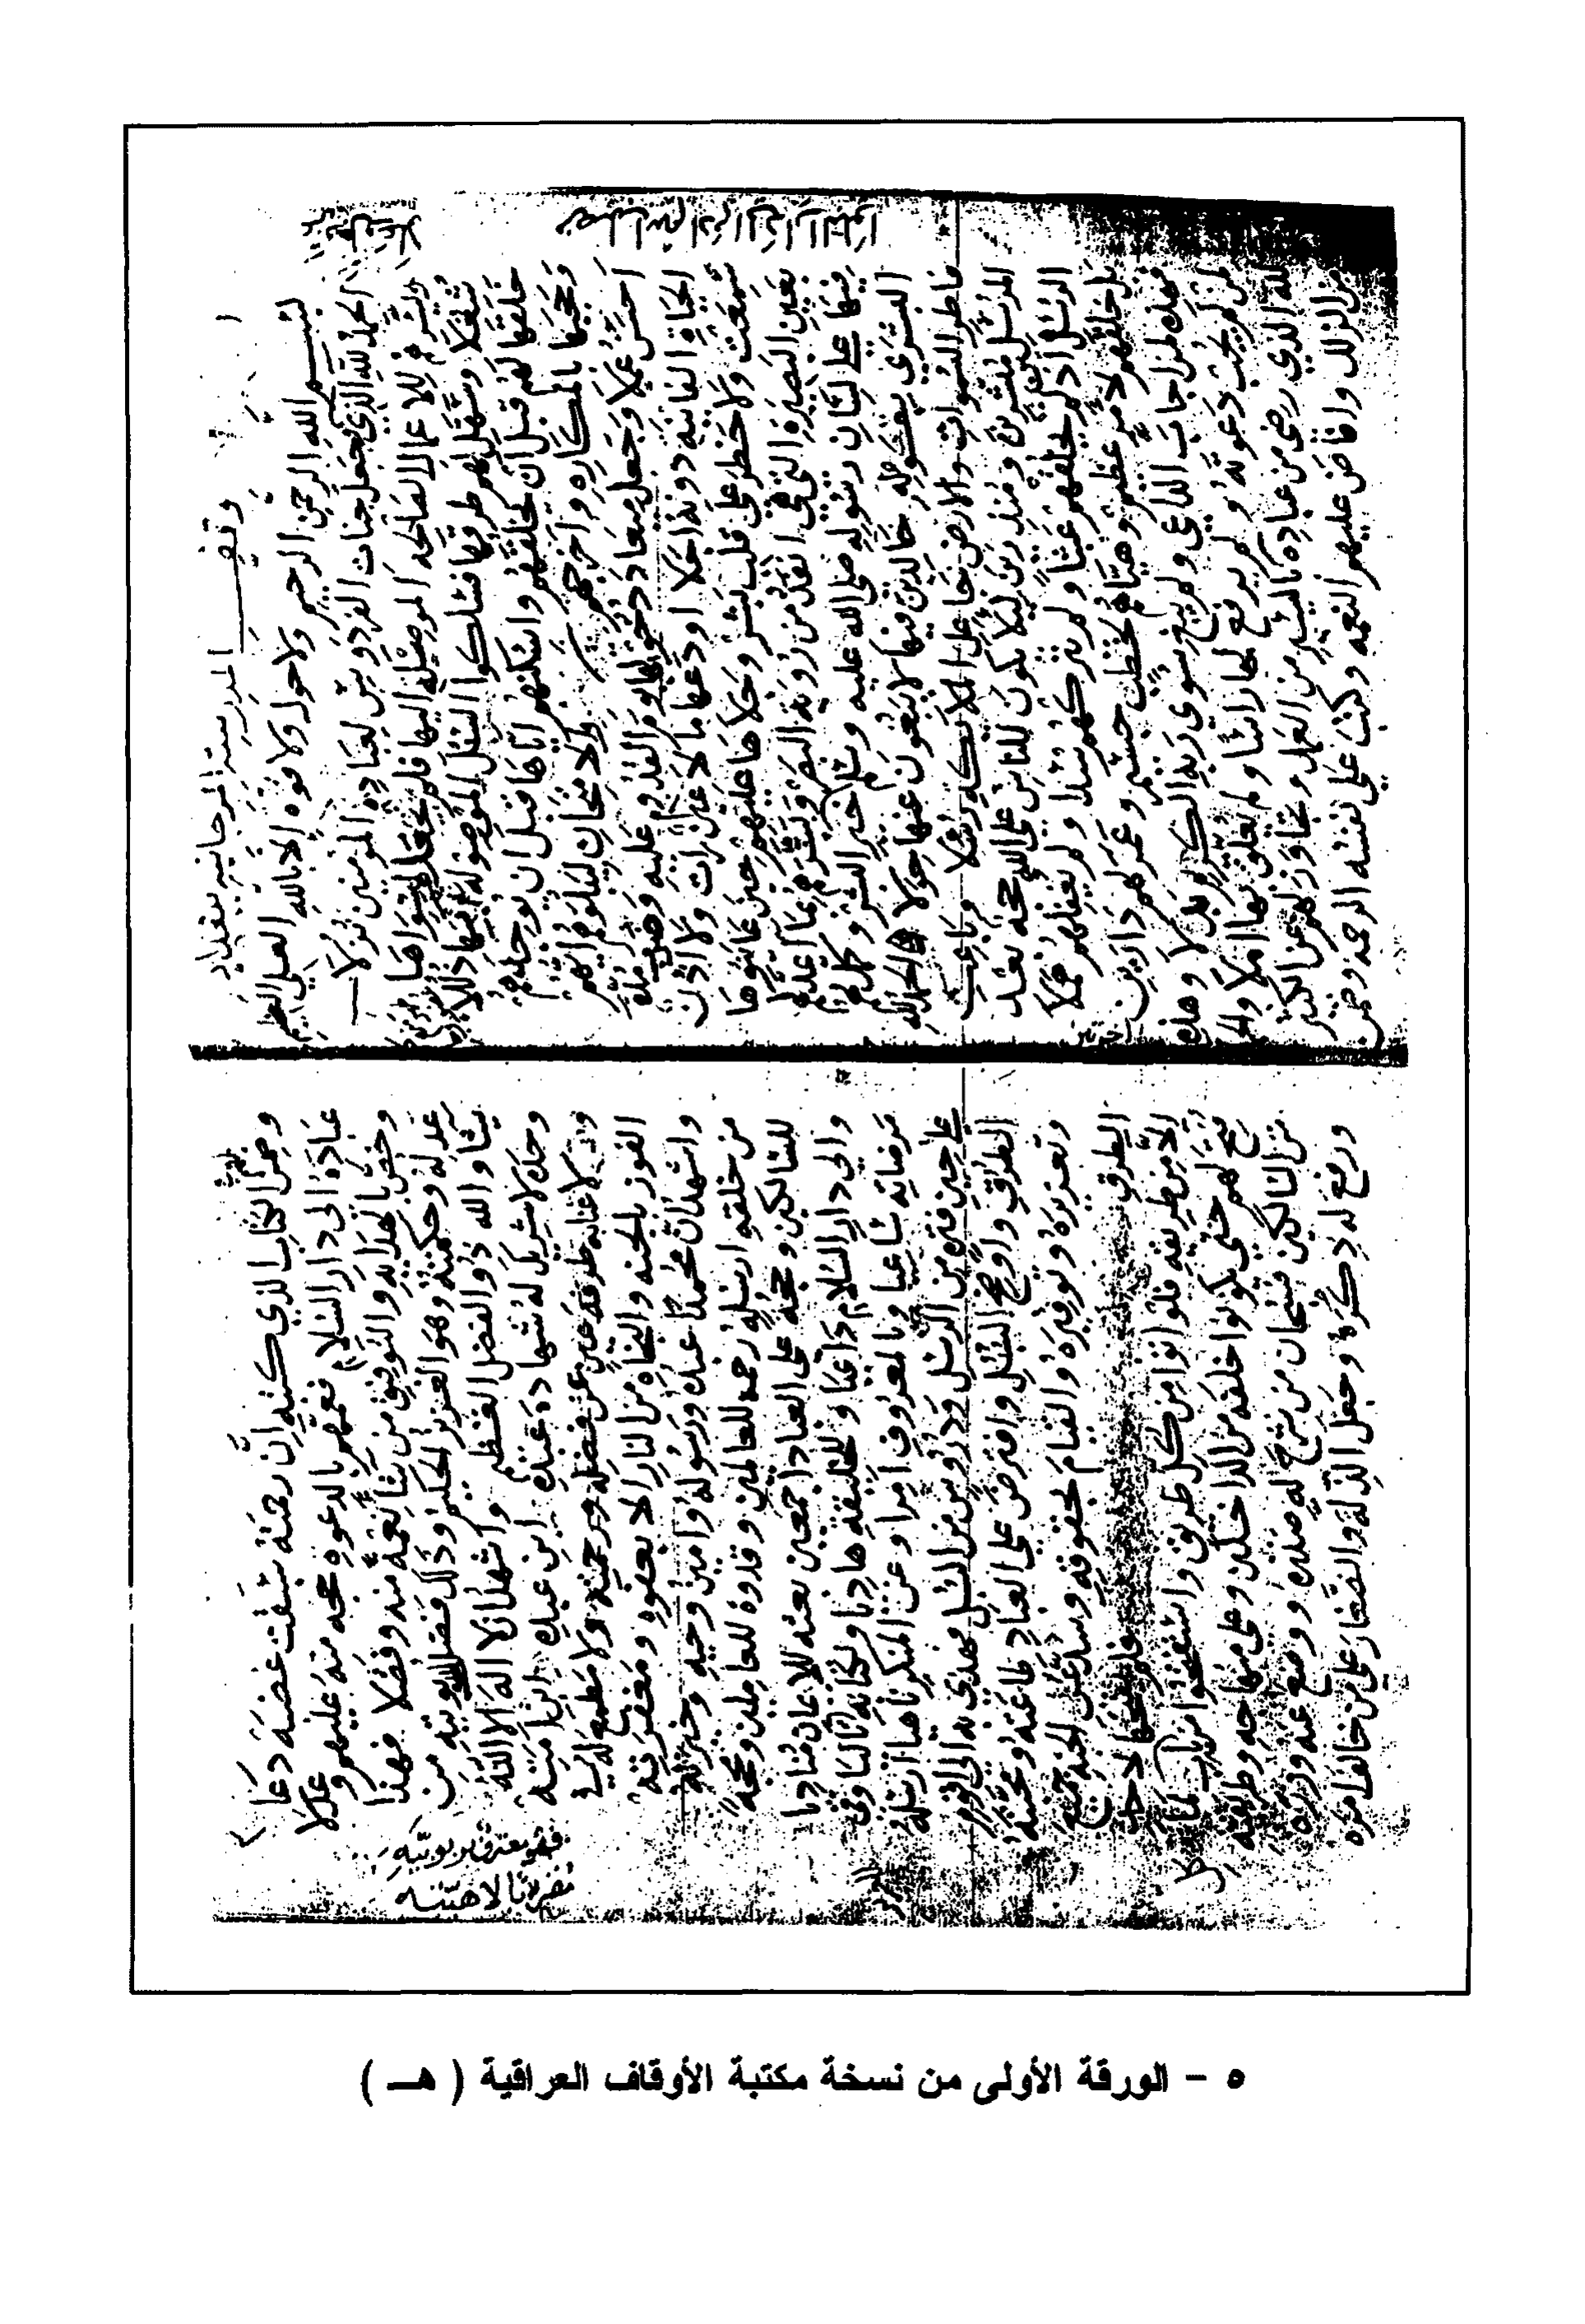 وقف المدرسة المرجانيه ببغداد
بسم الله الرحمن الرحيم ولا حول ولا قوة إلا بالله العلي العظيم
الحمد لله الذي جعل جنات الفردوس لعباده المومنين نزلا
ويسرهم للاعمال الصالحه الموصله اليها فلم سواها
شغلا وسهل لهم طرقها فسلكوا السبل الموصوله اليها ذللا
خلقها لهم قبل ان يخلقهم واسكنهم اياها قبل ان يوجدهم
وحجبها بالمكاره واخرجهم الامتحان ليبلوهم ايهم
احسن عملا وجعل ميعاد دخولها يوم القدوم عليه وضرب مدة
الحياة الفانيه دونه اجلا اودعها ما لا عين رات ولا اذن
سمعت ولا خطر على قلب بشر وجلاها عليهم حتى عاينوها
بعين البصيرة التي هي انفذ من روية البصر وبشرهم بما اعد لهم
فيها على لسان رسوله صلى الله عليه وسلم خير البشر وكمل لهم
البشرى بقوله خالدين فيها لا يبغون عنها حولا والحمد لله
فاطر السموات والارض جاعل الملائكه رسلا وباعث
الرسل مبشرين ومنذرين ليلا يكون للناس على الله حجه بعد
الرسل اذ لم يخلقهم عبثا ولم يتركهم سدا ولم يغفلهم هملا
بل خلقهم لامر عظيم وهياهم لخطب جسيم وعمر لهم دارين
فهذه لمن اجاب الداعي ولم يبغ سوى ربه الكريم بدلا وهذه
لمن لم يجب دعوته ولم يرفع لها راسا ولم يعلق بها املا والحمد
لله الذي رضي من عباده باليسير من العمل وتجاوز لهم عن الكثير
من الزلل وافاض عليهم النعمه وكتب على نفسه الرحمه وضمن
وضمن الكتاب الذي كتبه ان رحمته سبقت غضبه دعا
عباده الى دار السلام فعمهم بالدعوه حجه منه عليهم وعدلا
وخص بالهدايه والتوفيق من يشا نعمه منه وفضلا فهذا
عدله وحكمته وهو العزيز الحكيم وذلك فضله يوتيه من
يشا والله ذو الفضل العظيم واشهد ان لا اله الا الله
وحده لا شريك له شهاده عبده ابن عبده ابن امته
ومن لا غنا به طرفه عين عن فضله ورحمته ولا مطمع له في
الفوز بالجنه والنجاه من النار الا بعفوه ومغفرته
واشهد ان محمدا عبده ورسوله وامينه على وحيه وخيرته
من خلقه ارسله رحمه للعالمين وقدوة للعاملين ومحجة
للسالكين وحجه على العباد اجمعين بعثه للايمان مناديا
والى دار السلام داعيا وللخليقه هاديا ولكتابه تاليا وفي
مرضاته ساعيا وبالمعروف امرا وعن المنكر ناهيا ارسله
على حين فتره من الرسل ودروس من السبل فهدى به الى اقوم
الطرق واوضح السبل وافترض على العباد طاعته ومحبته
وتعزيره وتوقيره والقيام بحقوقه وسد الى الجنه جميع
الطرق فلم يفتحها لاحد
الا من طريقه فلو اتوا من كل طريق واستفتحوا من كل باب لما
فتح لهم حتى يكونوا خلفه من الداخلين وعلى منهاجه وطريقته
من السالكين فسبحان من شرح له صدره ووضع عنه وزره
ورفع له ذكره وجعل الذله والصغار على من خالف امره
٥ – الورقة الأولى من نسخة مكتبة الأوقاف العراقية ( هـ )